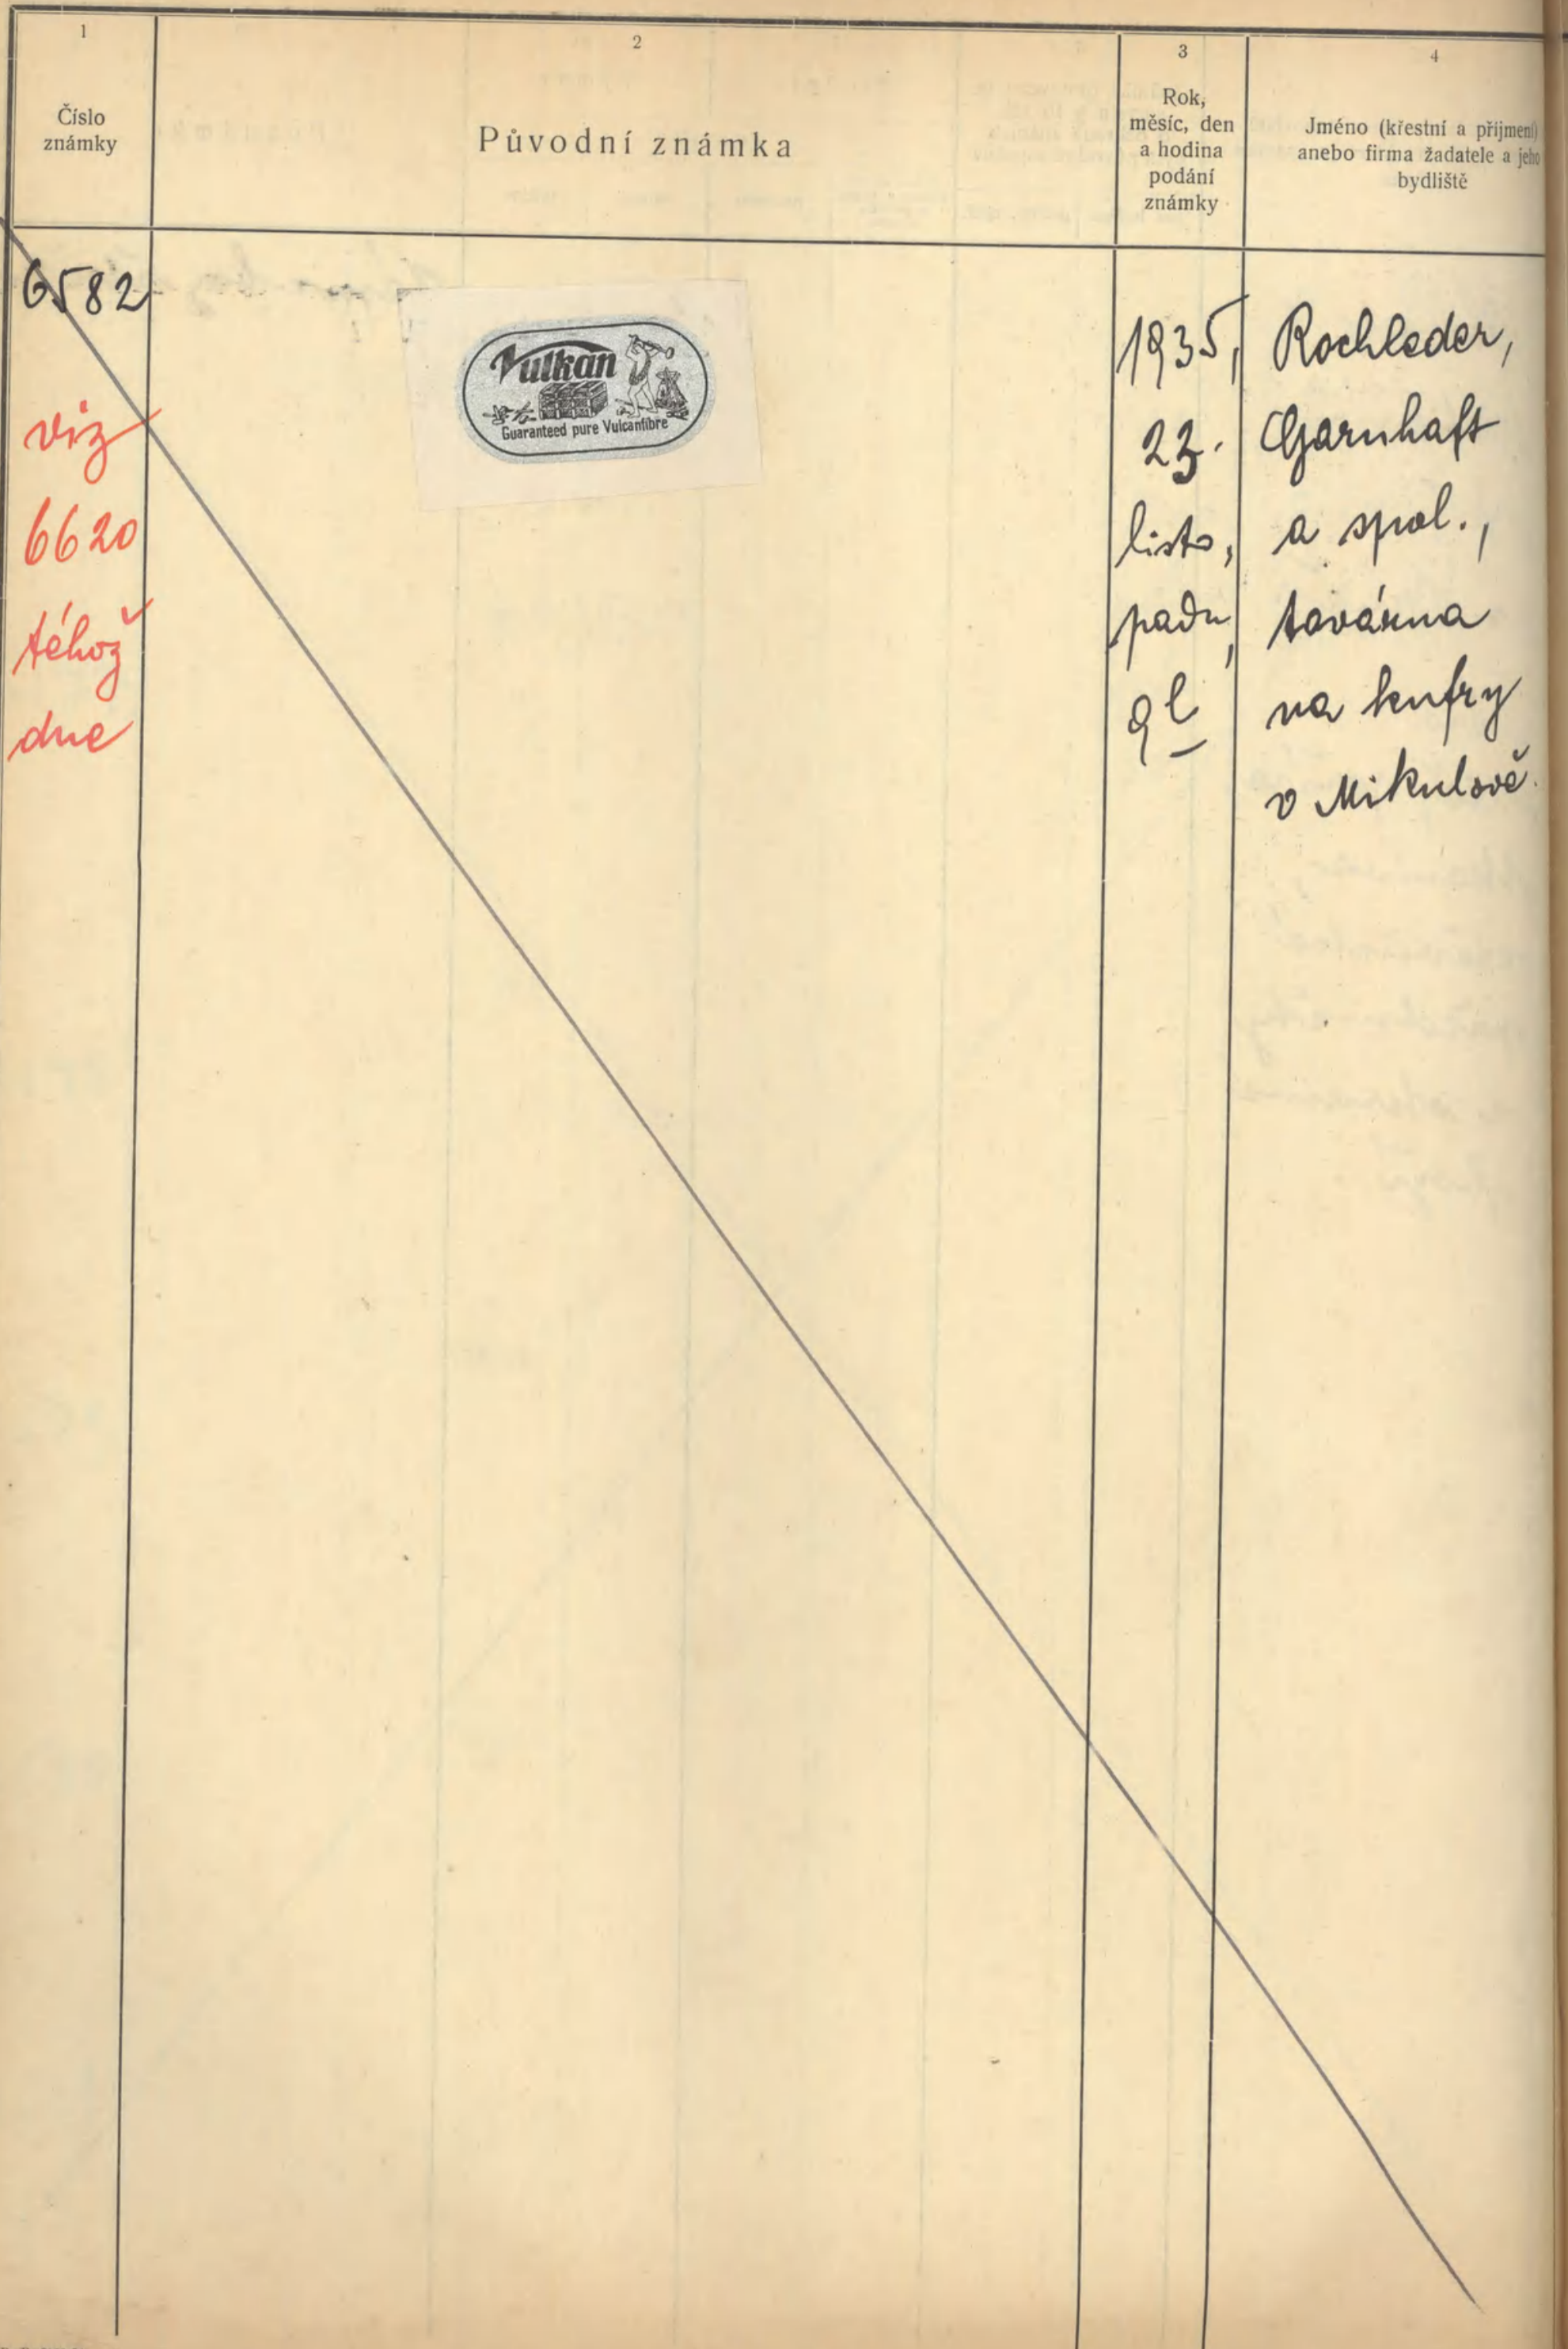 1
Číslo
známky
2
Původní známka
3
Rok,
měsíc, den
a hodina
podání
známky
4
Jméno (křestní a příjmení)
anebo firma žadatele a jeho
bydliště
6582
viz
6620
téhož
dne
Vulkan
Guaranteed pure Vulcanfibre
1935,
23.
listo,
padu,
9 h
Rochleder,
Garnhaft
a spol.,
továrna
na kufry
v Mikulově.